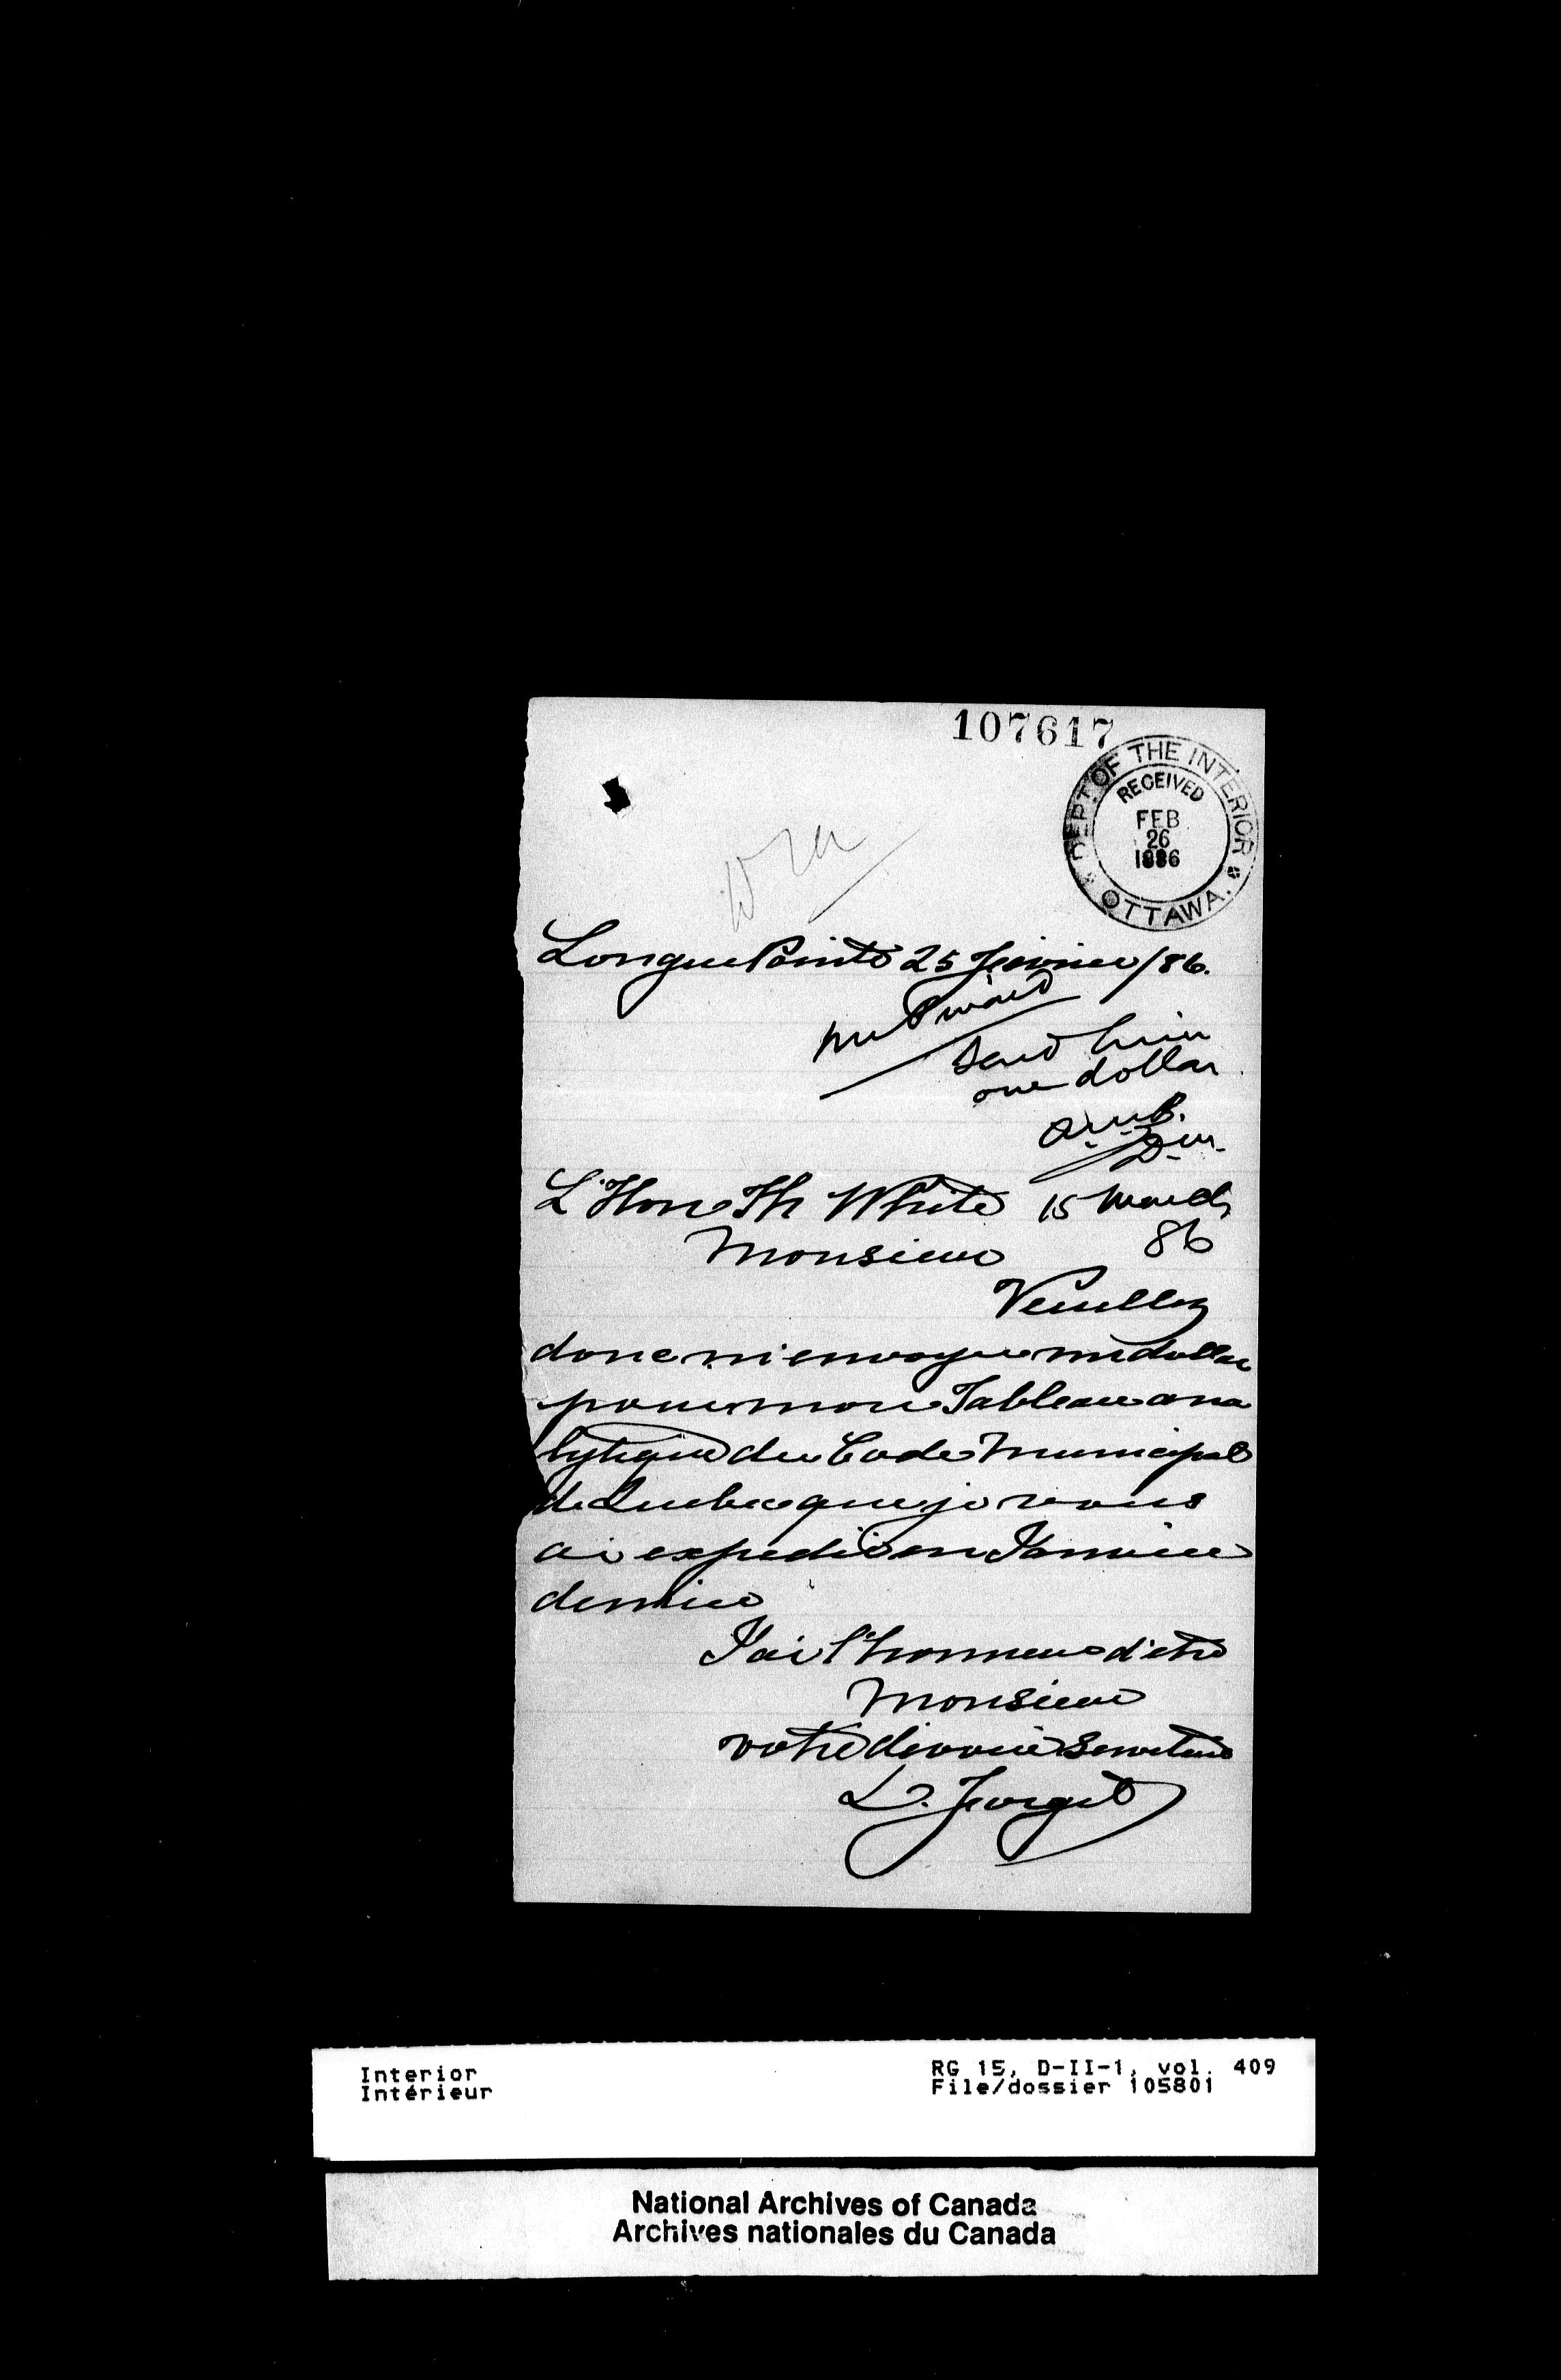 107617
DEPT. OF THE INTERIOR
RECEIVED
FEB
26
1886
OTTAWA.
Longue Pointe 25 Fevrier /86.
Mr
Send him
one dollar
L'Hon Th White
15 March
86
Monsieur
Veuillez
donc m'envoyer un dollar
pour mon Tableau ana
lytique du Code Municipal
de Quebec que je vous
ai expedié en Janvier
dernier
J'ai l'honneur d'etre
Monsieur
votre devoué Serviteur
L. Forget
Interior
Intérieur
RG 15, D-II-1, vol. 409
File/dossier 105801
National Archives of Canada
Archives nationales du Canada